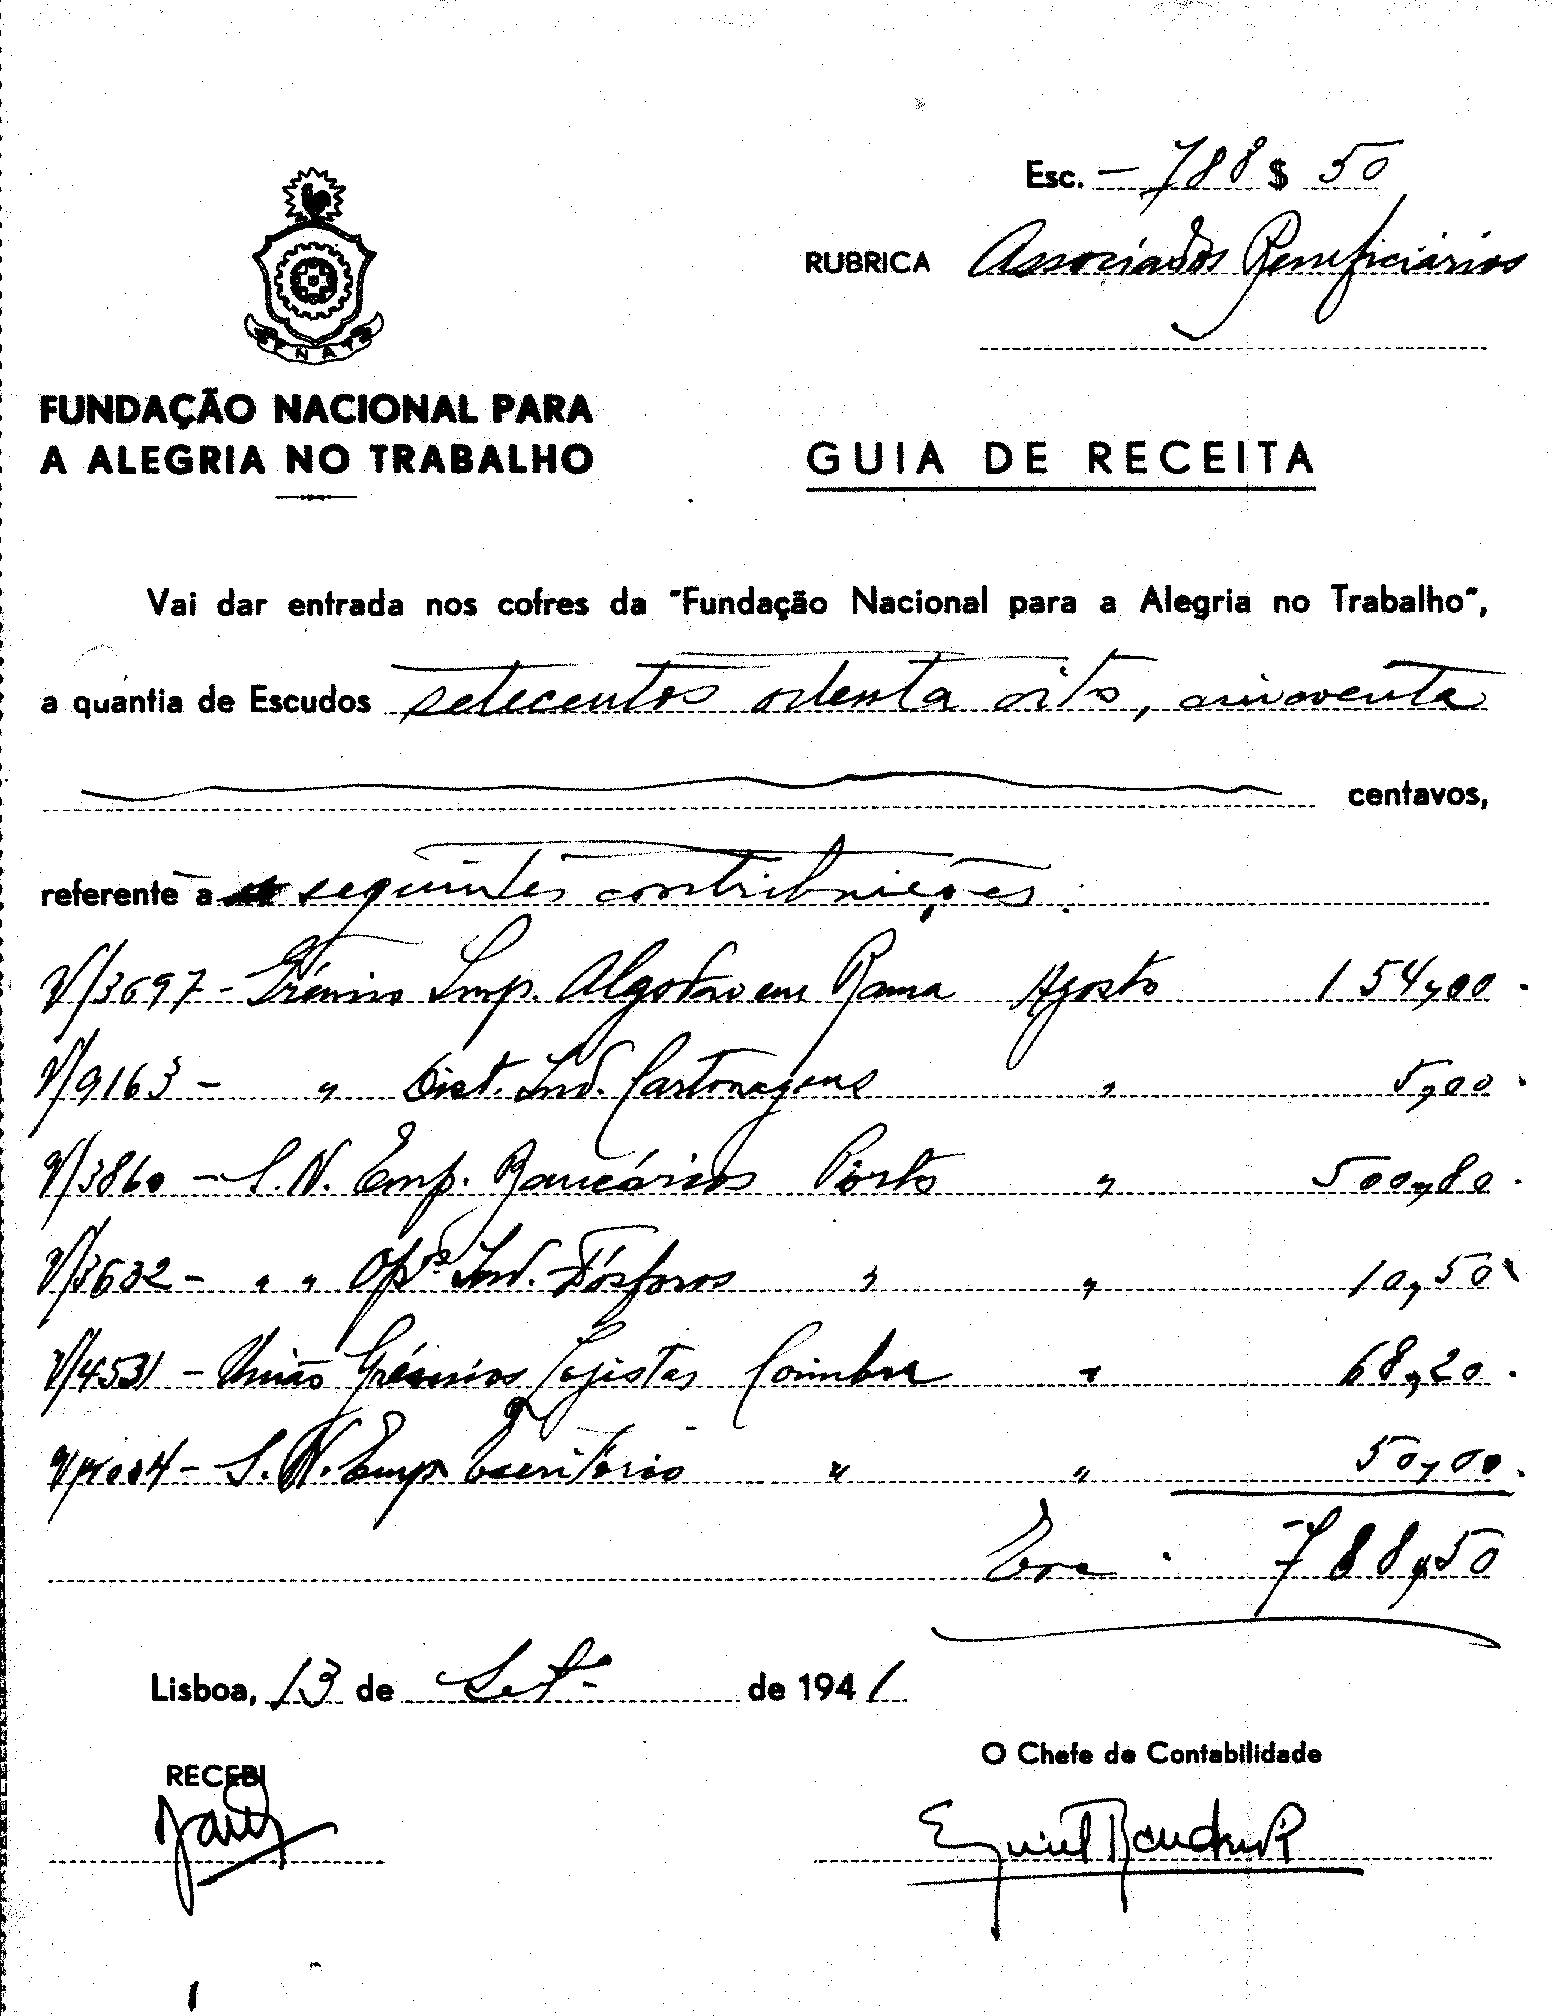 Esc. - 788 $ 50
RUBRICA Associados Beneficiários
FENAT
FUNDAÇÃO NACIONAL PARA
A ALEGRIA NO TRABALHO
GUIA DE RECEITA
Vai dar entrada nos cofres da "Fundação Nacional para a Alegria no Trabalho",
a quantia de Escudos setecentos oitenta oito, cincoenta
centavos,
referente a seguintes contribuições:
V/3697 - Grémio Imp. Algodão em Rama Agosto 154,00
V/9163 - " Dist. Ind. Cartonagens " 5,00
V/3860 - S.N. Emp. Bancários Porto " 500,80
V/3632 - " " Opºs Ind. Fósforos " " 10,50
V/4531 - União Grémios Lojistas Coimbra " 68,20
S.N. Emp. Escritório " " 50,00
Esc. 788,50
Lisboa, 13 de Setº de 1941
RECEBI
O Chefe de Contabilidade